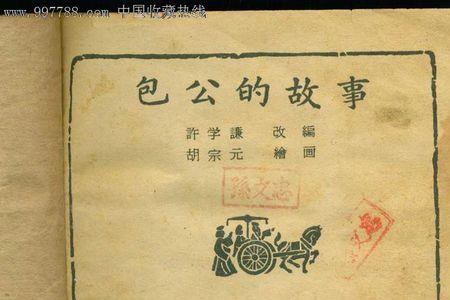 www.997788.com 中国收藏热线
包公的故事
許学謙 改編
胡宗元 繪画
孫文忠